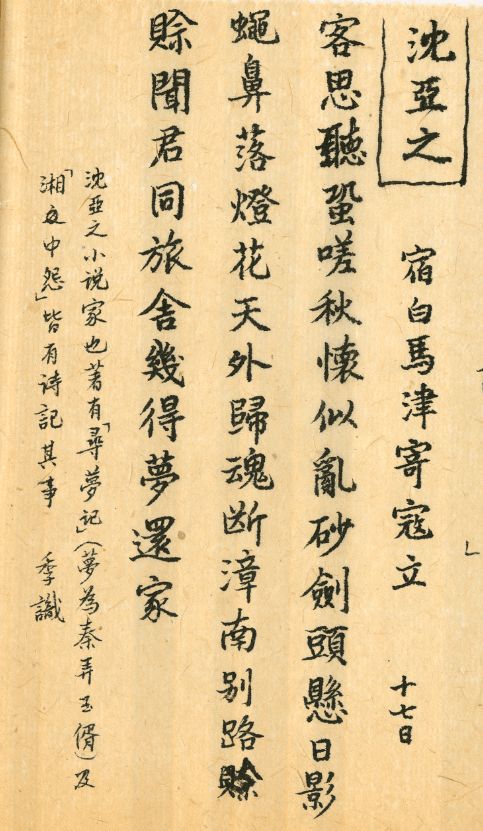 沈亞之
宿白馬津寄寇立
十七日
客思聽蛩嗟秋懷似亂砂劍頭懸日影
蠅鼻落燈花天外歸魂断漳南别路賒
賒聞君同旅舍幾得夢還家
沈亞之小说家也著有「尋夢記」(夢為秦弄玉偦)及
「湘夜中怨」皆有诗記其事 季識